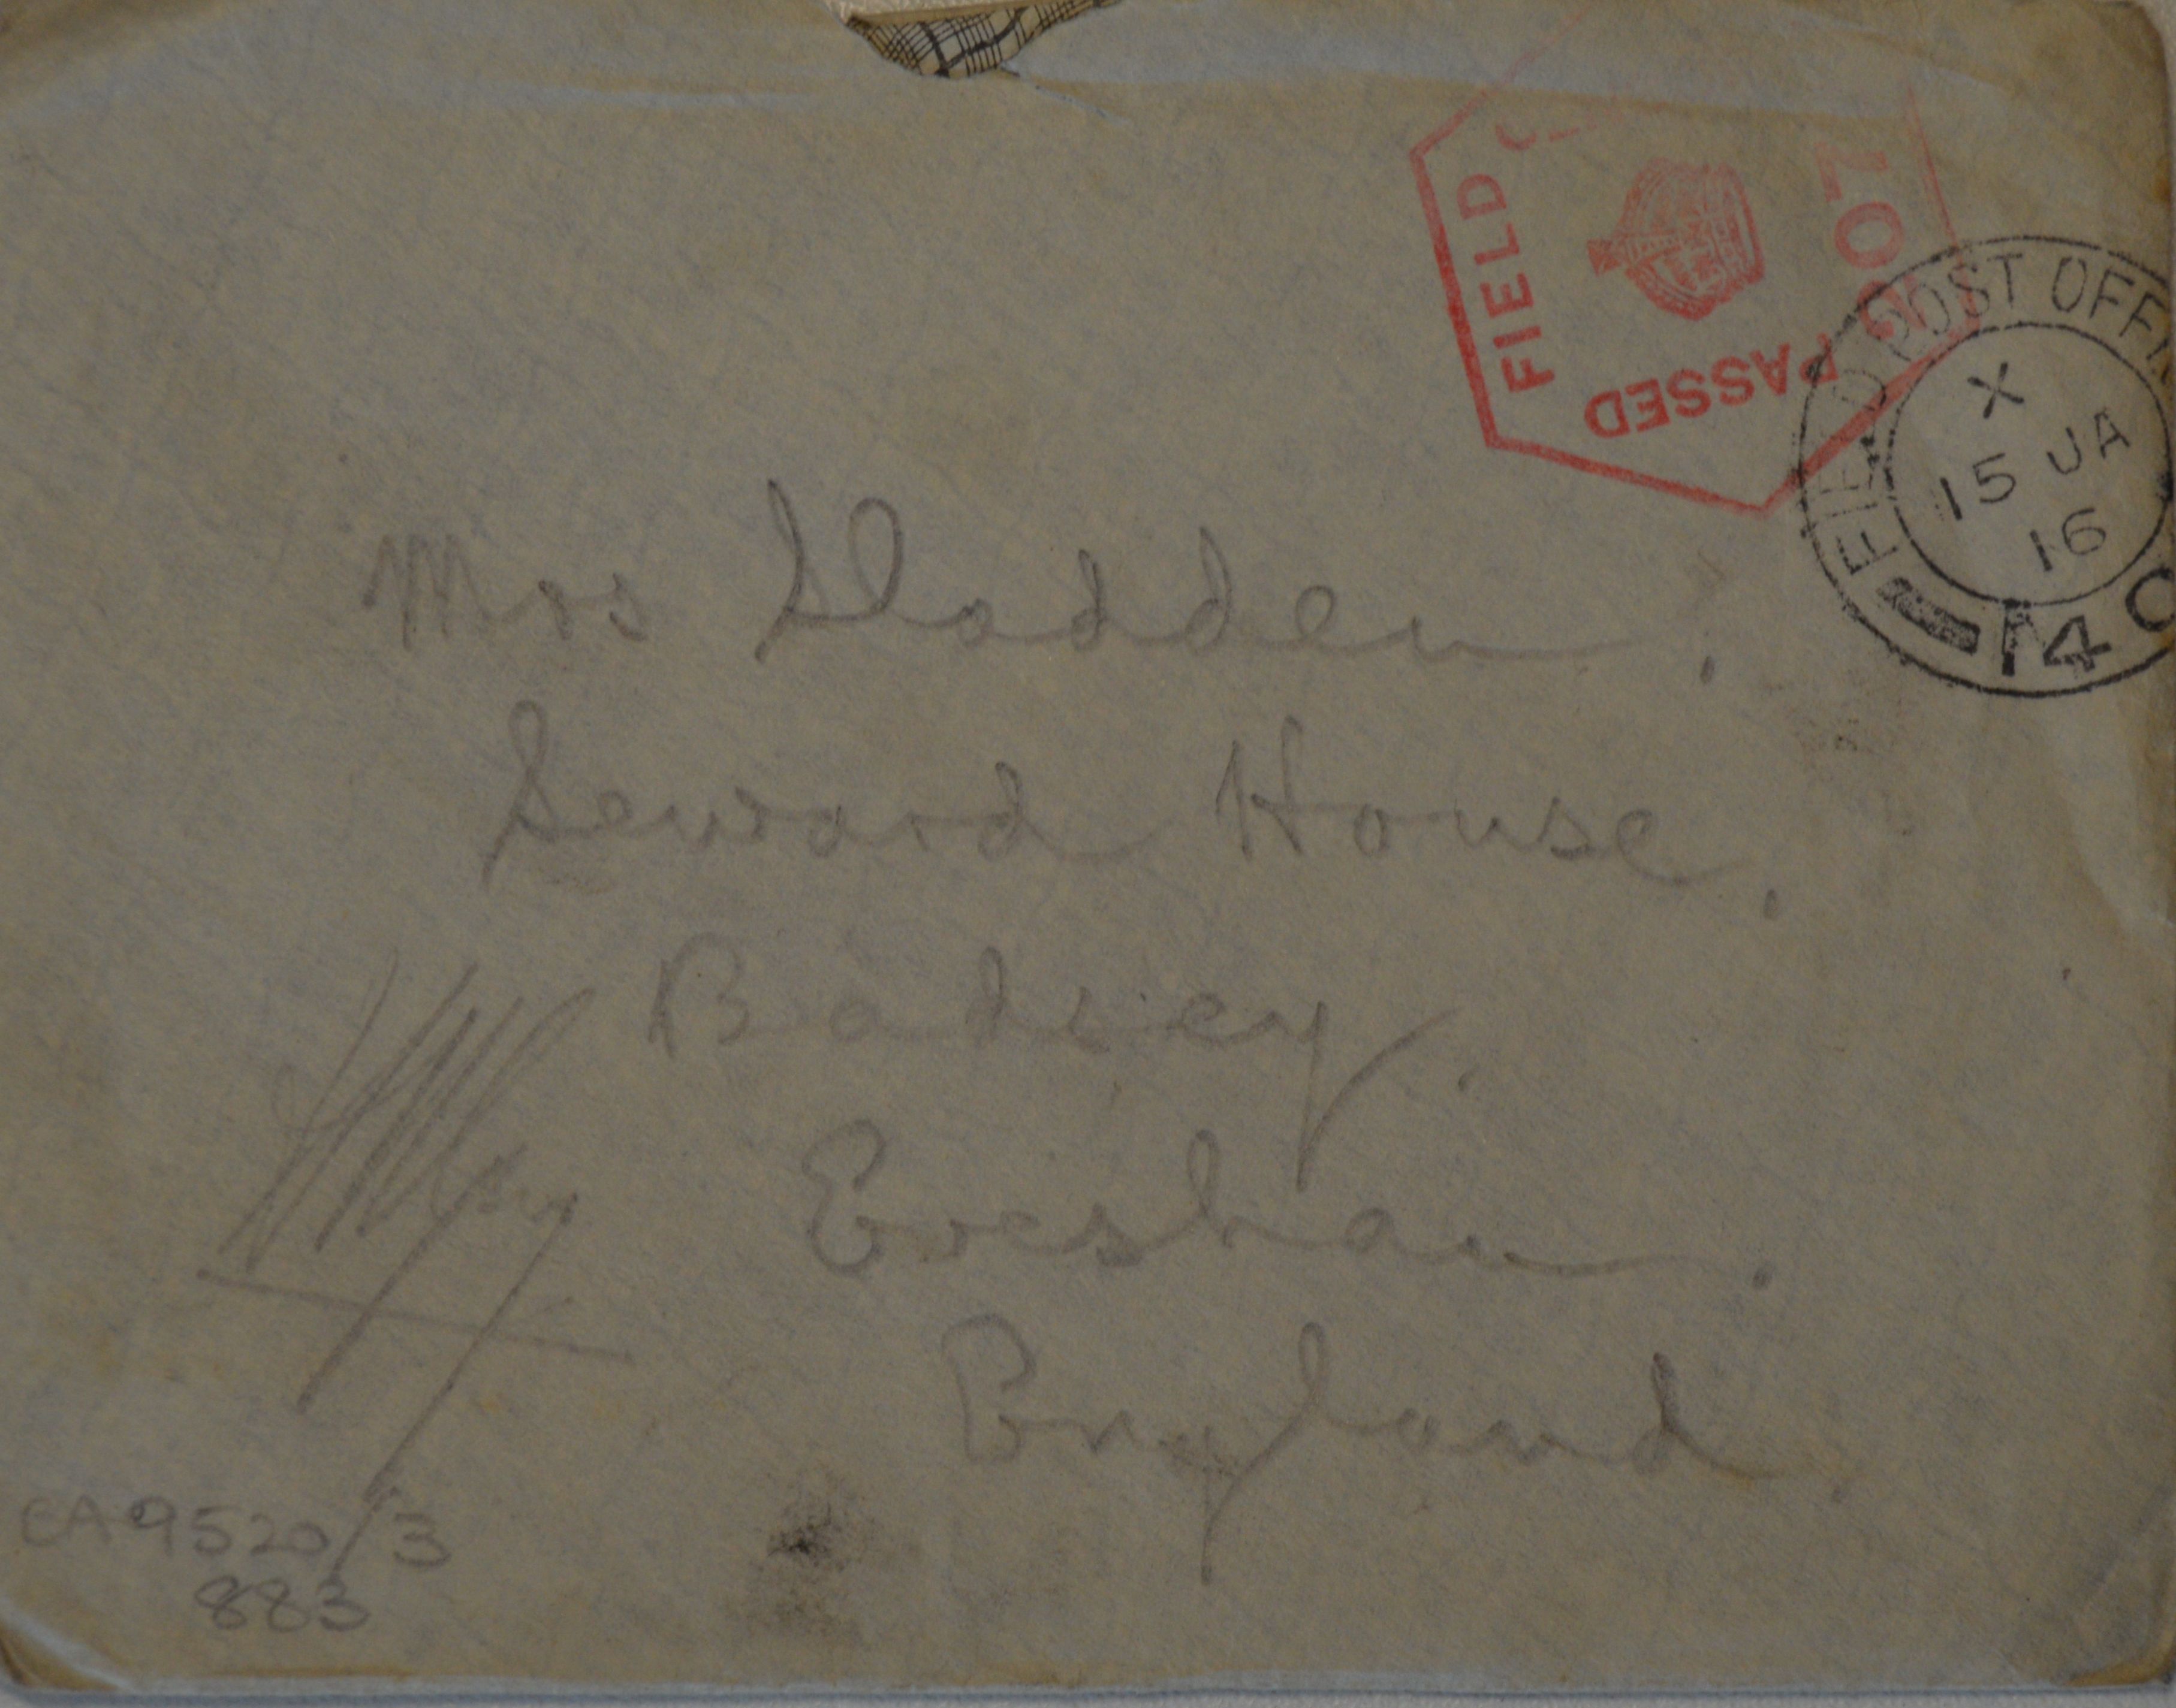 FIELD
PASSED
FIELD POST OFFI
X
15 JA
16
140
Mrs Sladden.
Seward House.
Badsey.
Evesham.
England.
CA9520/3
883